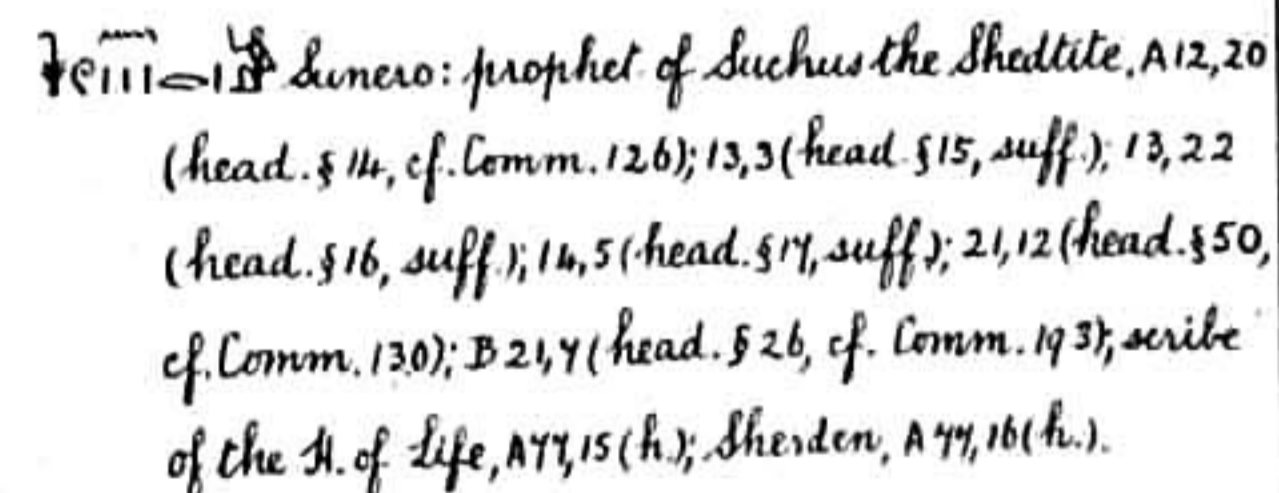 Sunero: prophet of Suchus the Shedtite, A12,20
(head. § 14, cf. Comm. 126); 13,3 (head §15, suff.); 13,22
(head. §16, suff.); 14,5 (head. §17, suff.); 21,12 (head. §50,
cf. Comm. 130); B 21,7 (head. § 26, cf. Comm. 193); scribe
of the H. of Life, A77,15 (h.); Sherden, A 77,16 (h.).